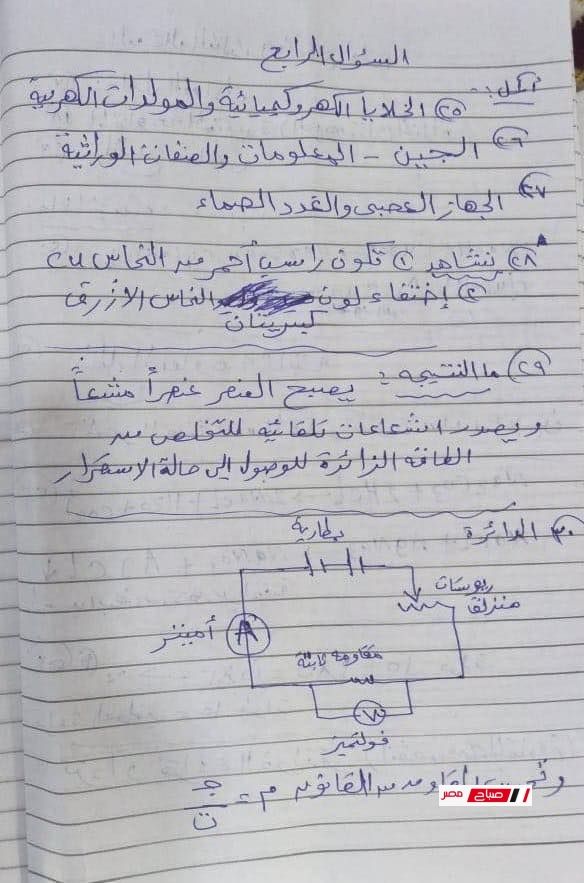 السؤال الرابع
أكمل :-
٢٥) الخلايا الكهروكيميائية والمولدات الكهربية
٢٦) الجين - المعلومات والصفات الوراثية
٢٧) الجهاز العصبى والغدد الصماء
٢٨) نشاهد ① تكون راسب أحمر من النحاس cu
② إختفاء لون النحاس الازرق
كبريتات
٢٩) ما النتيجه : يصبح العنصر عنصراً مشعاً
ويصدر اشعاعات تلقائيه للتخلص من
الطاقه الزائدة للوصول إلى حالة الاستقرار
٣٠) الدائرة
بطارية
ريوستات
منزلق
A أميتر
مقاومه ثابتة
V
فولتميتر
من القانون م = ج / ت
صباح مصر